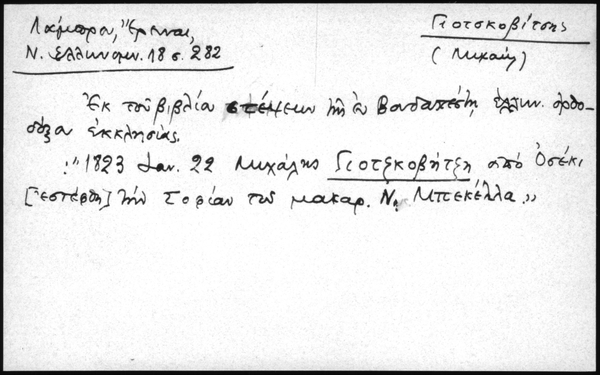 Λάμπρου, Ἔρευναι,
Ν. Ἑλληνομν. 18 σ. 282
Γιοτσκοβίτσης
(Μιχαὴλ)
Ἐκ τοῦ βιβλία στέψεων τῆς ἐν Βουδαπέστῃ ἑλλην. ὀρθο-
δόξου ἐκκλησίας.
:"1823 Ἰαν. 22 Μιχάλης Γιοτζκοβήτζη ἀπὸ Ὀσέκι
[ἐστέφθη] τὴν Σοφίαν τοῦ μακαρ. Ν. Μπεκέλλα."